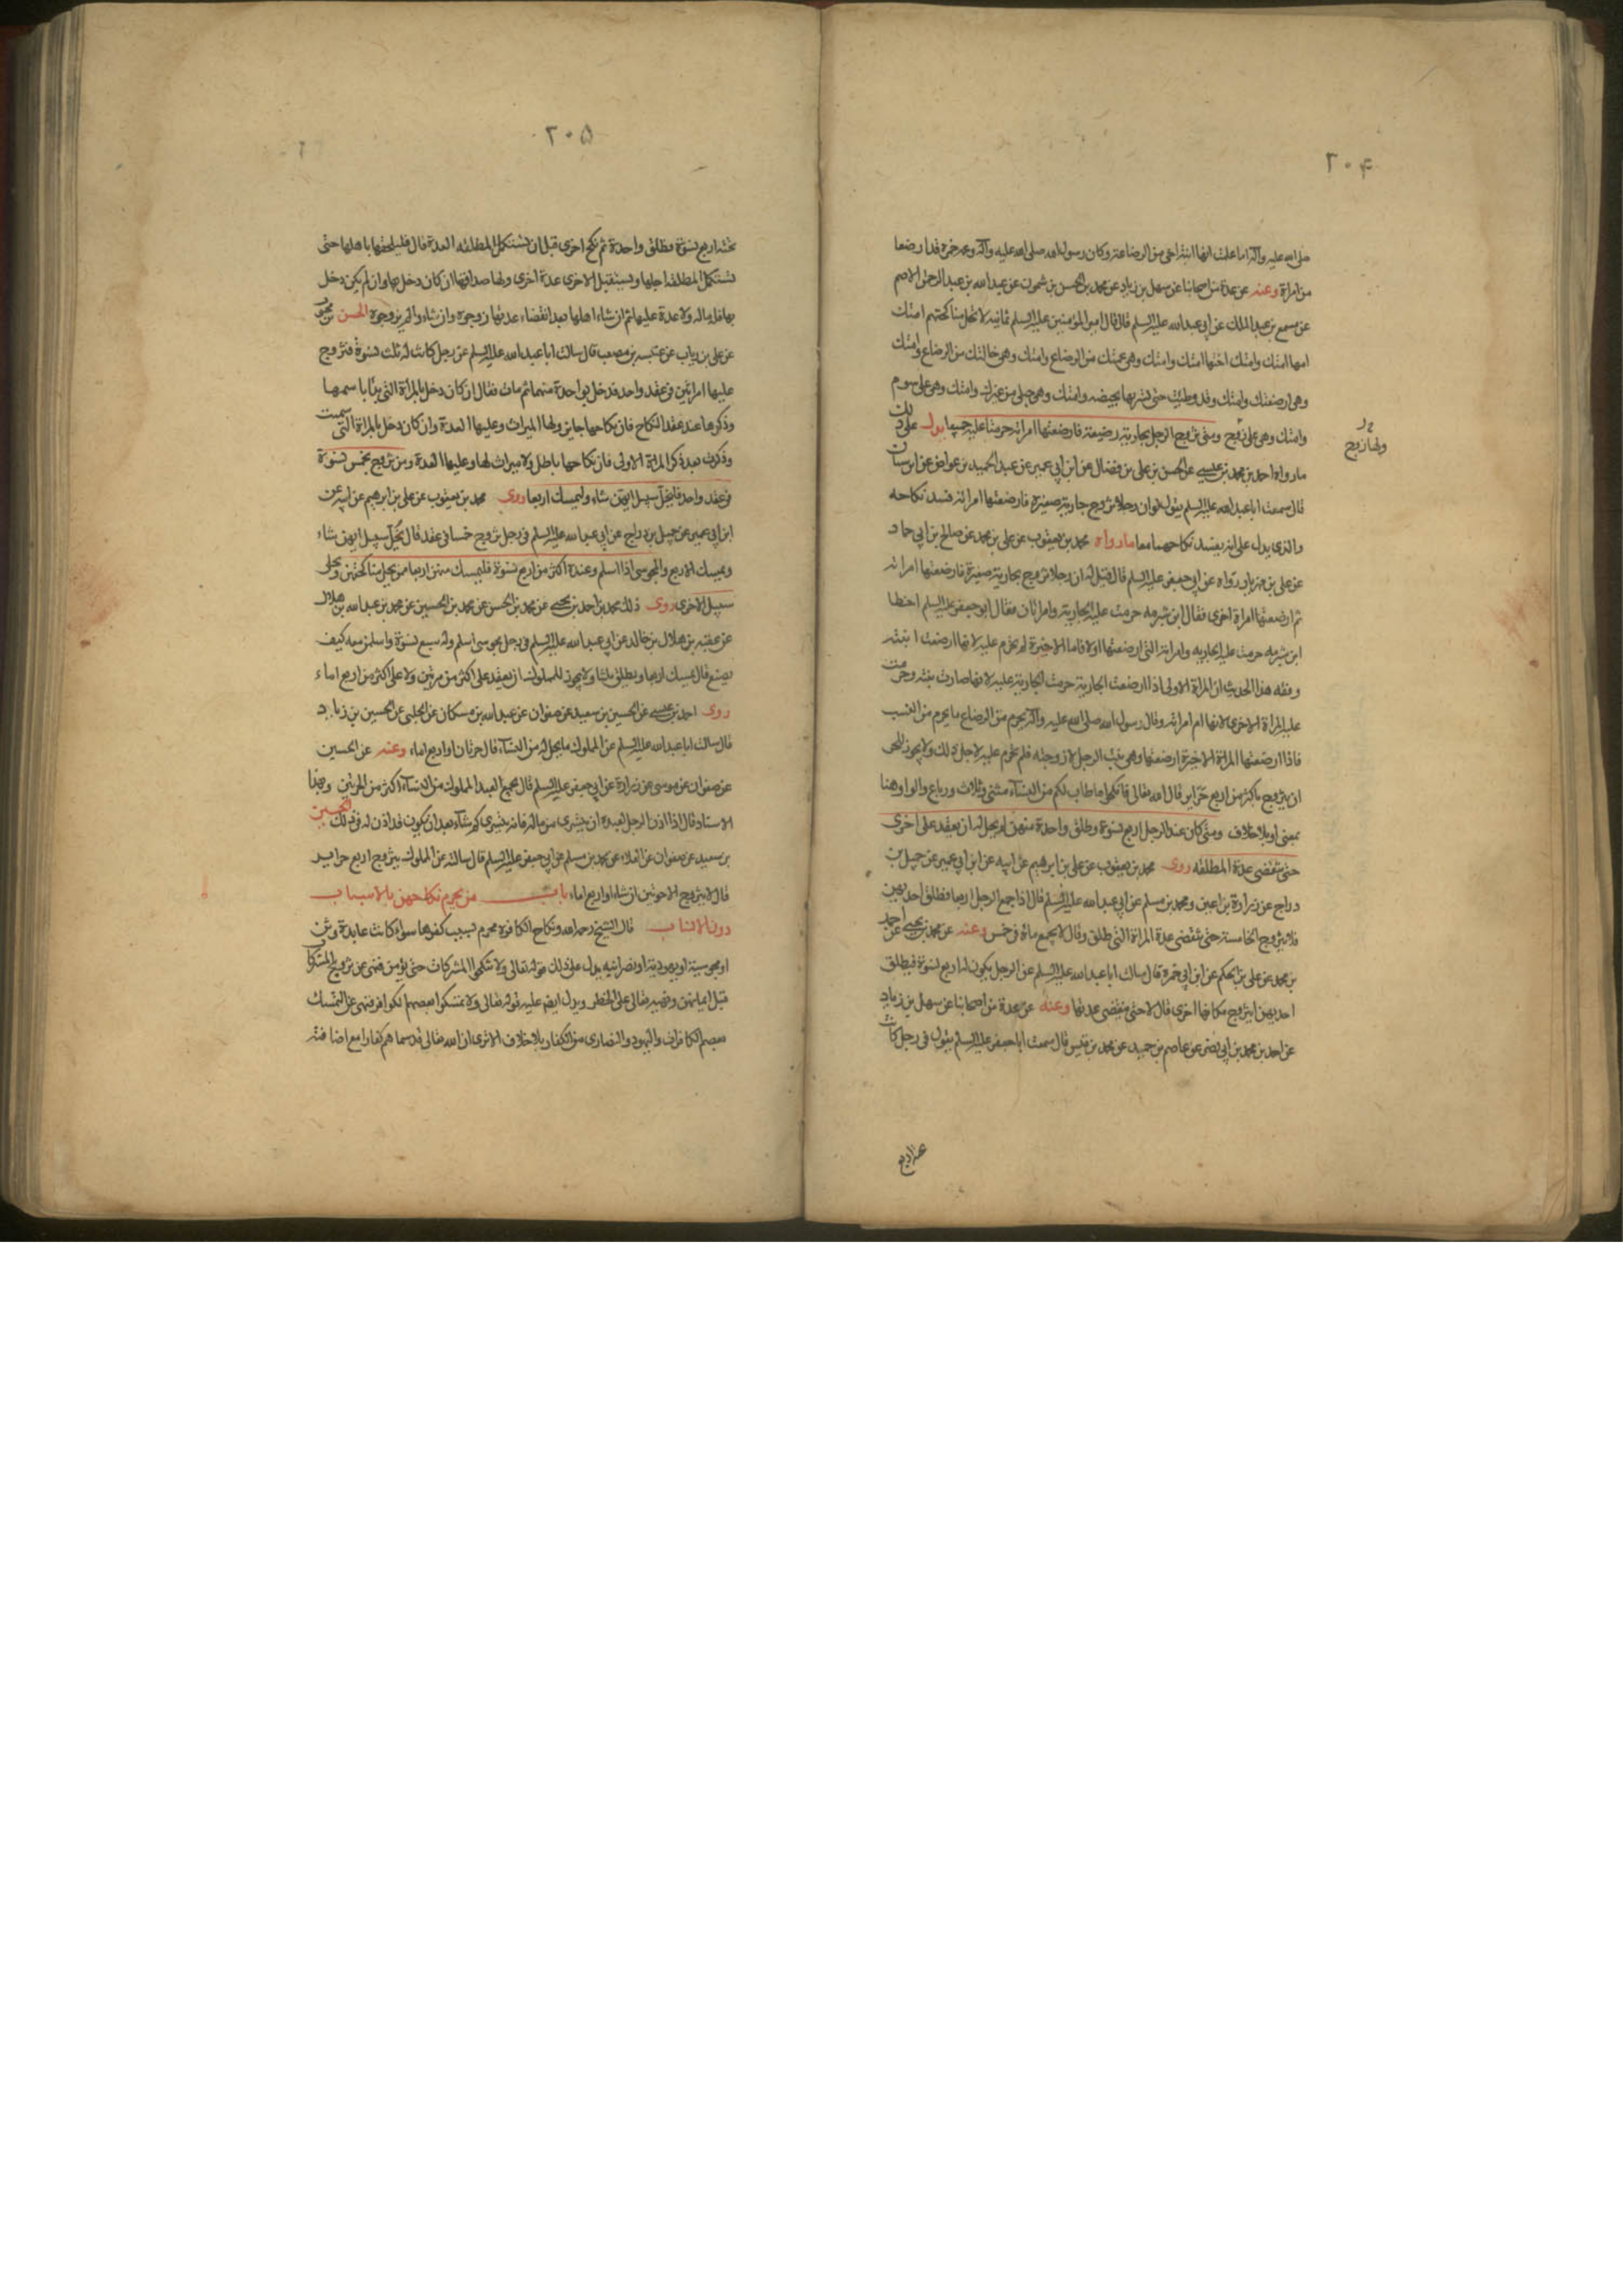 ٢٠۴
صلى الله عليه وآله اما علمت انها ابنة اخى من الرضاعة وكان رسول الله صلى الله عليه وآله وعمه حمزة قد ارضعا
من امراة وعنه عن عدة من اصحابنا عن سهل بن زياد عن محمد بن الحسن بن شمون عن عبد الله بن عبد الرحمن الاصم
عن مسمع بن عبد الملك عن ابى عبد الله عليه السلم قال قال امير المؤمنين عليه السلم ثمانية لا تحل مناكحتهم امتك
امها امتك وامتك اختها امتك وامتك وهى عمتك من الرضاع وامتك وهى خالتك من الرضاع وامتك
وهى ارضعتك وامتك وقد وطئت حتى تستبرئها بحيضة وامتك وهى حبلى من غيرك وامتك وهى على سوم
وامتك وهى على زوج ومتى تزوج الرجل بجارية رضيعة فارضعتها امراته حرمتا عليه جميعا يدل على ذلك
ولها زوج
ما رواه احمد بن محمد بن عيسى عن الحسن بن على بن فضال عن ابن ابى عمير عن عبد الحميد بن عواض عن ابن سنان
قال سمعت ابا عبد الله عليه السلم يقول لو ان رجلا تزوج جارية صغيرة فارضعتها امراته فسد نكاحه
والذى يدل على انه يفسد نكاحهما معا ما رواه محمد بن يعقوب عن على بن محمد عن صالح بن ابى حماد
عن على بن مهزيار رواه عن ابى جعفر عليه السلم قال قيل له ان رجلا تزوج بجارية صغيرة فارضعتها امراته
ثم ارضعتها امراة اخرى فقال ابن شبرمه حرمت عليه الجارية وامراتان فقال ابو جعفر عليه السلم اخطا
ابن شبرمه حرمت عليه الجاريه وامراته التى ارضعتها اولا فاما الاخيرة لم تحرم عليه لانها ارضعت ابنته
وفقه هذا الحديث ان المراة الاولى اذا ارضعت الجارية حرمت الجارية عليه لانها صارت بنته وحرمت
عليه المراة الاخرى لانها ام امراته وقال رسول الله صلى الله عليه وآله يحرم من الرضاع ما يحرم من النسب
فاذا ارضعتها المراة الاخيرة ارضعتها وهى بنت الرجل لا زوجته فلم تحرم عليه لاجل ذلك ولا يجوز للحر
ان يتزوج باكثر من اربع حراير قال الله تعالى فانكحوا ما طاب لكم من النساء مثنى وثلاث ورباع والواو هنا
بمعنى او بلا خلاف ومتى كان عند الرجل اربع نسوة وطلق واحدة منهن لم يحل له ان يعقد على اخرى
حتى تنقضى عدة المطلقه روى محمد بن يعقوب عن على بن ابرهيم عن ابيه عن ابن ابى عمير عن جميل بن
دراج عن زرارة بن اعين ومحمد بن مسلم عن ابى عبد الله عليه السلم قال اذا جمع الرجل اربعا فطلق احديهن
فلا يتزوج الخامسة حتى تنقضى عدة المراة التى طلق وقال لا يجمع ماؤه فى خمس وعنه عن محمد بن يحيى عن احمد
بن محمد عن على بن الحكم عن ابن ابى حمزة قال سالت ابا عبد الله عليه السلم عن الرجل يكون له اربع نسوة فيطلق
احديهن ايتزوج مكانها اخرى قال لا حتى تنقضى عدتها وعنه عن عدة من اصحابنا عن سهل بن زياد
عن احمد بن محمد بن ابى نصر عن عاصم بن حميد عن محمد بن قيس قال سمعت ابا جعفر عليه السلم يقول فى رجل كانت
٢٠۵
تحته اربع نسوة فطلق واحدة ثم نكح اخرى قبل ان تستكمل المطلقه العدة قال فليلحقها باهلها حتى
تستكمل المطلقة اجلها وتستقبل الاخرى عدة اخرى ولها صداقها ان كان دخل بها وان لم يكن دخل
بها فله ماله ولا عدة عليها ثم ان شاء اهلها بعد انقضاء عدتها زوجوه وان شاؤا لم يزوجوه الحسن بن محبوب
عن على بن رياب عن عنبسه بن مصعب قال سالت ابا عبد الله عليه السلم عن رجل كانت له ثلث نسوة فتزوج
عليها امراتين فى عقد واحد فدخل بواحدة منهما ثم مات فقال ان كان دخل بالمراة التى بدا باسمها
وذكرها عند عقد النكاح فان نكاحها جايز ولها الميراث وعليها العدة وان كان دخل بالمراة التى سميت
وذكرت بعد ذكر المراة الاولى فان نكاحها باطل ولا ميراث لها وعليها العدة ومن تزوج بخمس نسوة
فى عقد واحد فليخل سبيل ايهن شاء وليمسك اربعا روى محمد بن يعقوب عن على بن ابرهيم عن ابيه عن
ابن ابى عمير عن جميل بن دراج عن ابى عبد الله عليه السلم فى رجل تزوج خمسا فى عقد قال يخل سبيل ايهن شاء
ويمسك الاربع والمجوسى اذا اسلم وعنده اكثر من اربع نسوة فليمسك منهن اربعا ممن يحل مناكحتهن ويخلى
سبيل الاخرى روى ذلك محمد بن احمد بن يحيى عن محمد بن الحسن عن محمد بن الحسين عن محمد بن عبد الله بن هلال
عن عقبه بن هلال بن خالد عن ابى عبد الله عليه السلم فى رجل مجوسى اسلم وله سبع نسوة واسلمن معه كيف
يصنع قال يمسك اربعا ويطلق ثلثا ولا يجوز للمملوك ان يعقد على اكثر من حرتين ولا على اكثر من اربع اماء
روى احمد بن عيسى عن الحسين بن سعيد عن صفوان عن عبد الله بن مسكان عن الحلبى عن الحسين بن زياد
قال سالت ابا عبد الله عليه السلم عن المملوك ما يحل له من النساء قال حرتان او اربع اماء وعنه عن الحسين
عن صفوان عن موسى عن زرارة عن ابى جعفر عليه السلم قال يجمع العبد المملوك من النساء اكثر من الحرتين وبهذا
الاسناد قال اذا اذن الرجل لعبده ان يتسرى من ماله فانه يتسرى كم شاء بعد ان يكون قد اذن له فى ذلك الحسين
بن سعيد عن صفوان عن العلاء عن محمد بن مسلم عن ابى جعفر عليه السلم قال سالته عن المملوك يتزوج اربع حراير
قال لا يتزوج الا حرتين ان شاء او اربع اماء باب من يحرم نكاحهن بالاسباب
دون الانساب قال الشيخ رحمه الله ونكاح الكافرة محرم بسبب كفرها سواء كانت عابدة وثن
او مجوسية او يهودية او نصرانيه يدل على ذلك قوله تعالى ولا تنكحوا المشركات حتى يؤمن فنهى عن تزويج المشركات
قبل ايمانهن ونهيه تعالى على الحظر ويدل ايضا عليه قوله تعالى ولا تمسكوا بعصم الكوافر فنهى عن التمسك
بعصم الكافرات واليهود والنصارى من الكفار بلا خلاف الا ترى ان الله تعالى قد سماهم كفارا مع اضافته